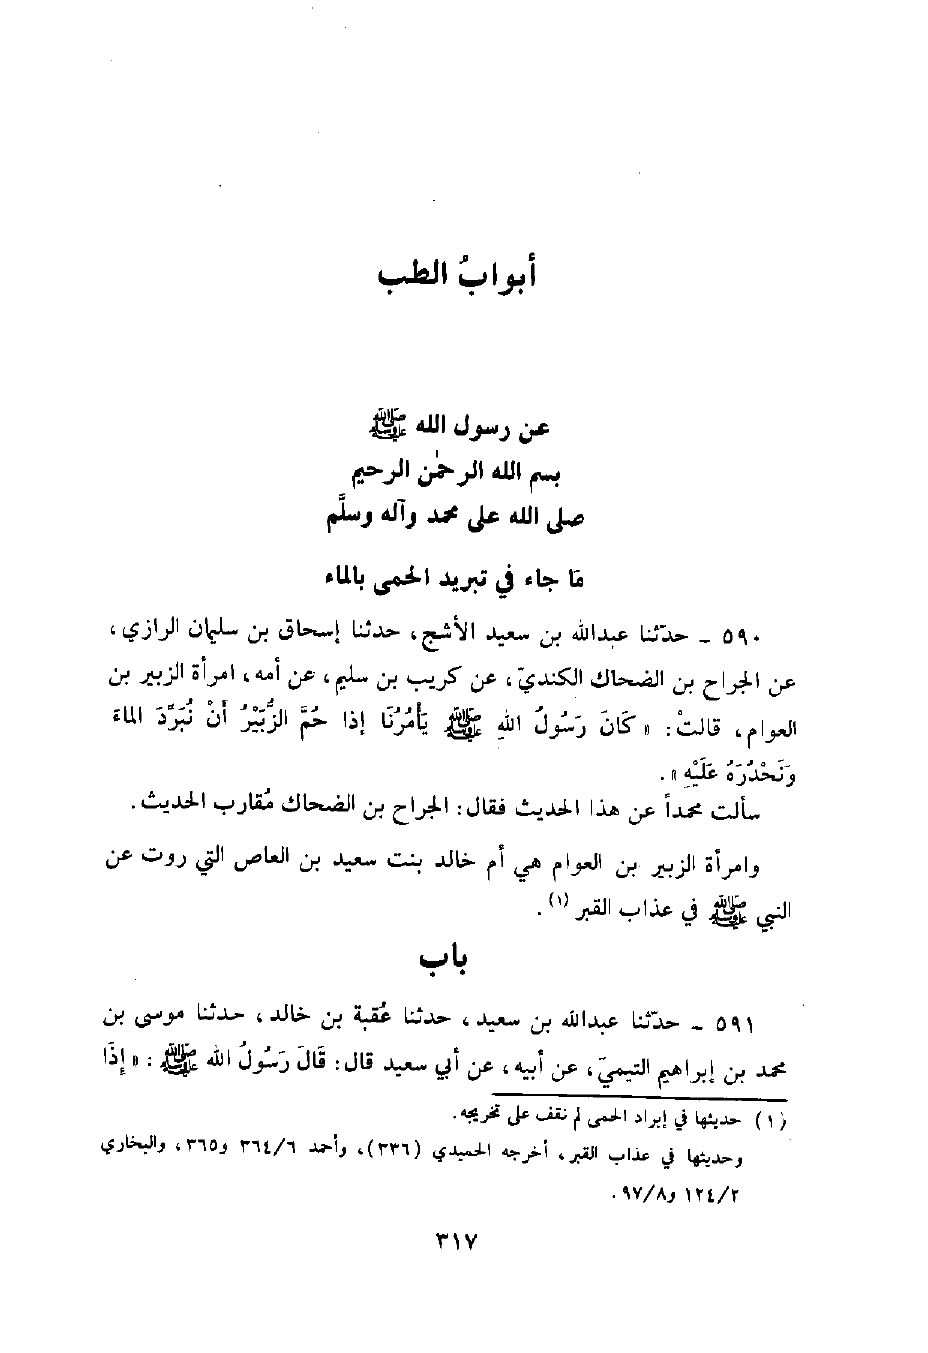 أبوابُ الطب
عن رسول الله ﷺ
بسم الله الرحمٰن الرحيم
صلى الله على محمد وآله وسلَّم
مَا جاء في تبريد الحمى بالماء
٥٩٠ ـ حدّثنا عبدالله بن سعيد الأشج، حدثنا إسحاق بن سليمان الرازي،
عن الجراح بن الضحاك الكنديّ، عن كريب بن سليم، عن أمه، امرأة الزبير بن
العوام، قالتْ: «كَانَ رَسُولُ اللهِ ﷺ يَأْمُرُنَا إذا حُمَّ الزُّبَيْرُ أَنْ نُبَرِّدَ الماءَ
وَنَحْدُرَهُ عَلَيْهِ».
سألت محمداً عن هذا الحديث فقال: الجراح بن الضحاك مُقارب الحديث.
وامرأة الزبير بن العوام هي أم خالد بنت سعيد بن العاص التي روت عن
النبي ﷺ في عذاب القبر (١).
باب
٥٩١ ـ حدّثنا عبدالله بن سعيد، حدثنا عُقبة بن خالد، حدثنا موسى بن
محمد بن إبراهيم التيميّ، عن أبيه، عن أبي سعيد قال: قَالَ رَسُولُ الله ﷺ: «إِذَا
(١) حديثها في إبراد الحمى لم نقف على تخريجه.
وحديثها في عذاب القبر، أخرجه الحميدي (٣٣٦)، وأحمد ٣٦٤/٦ و٣٦٥، والبخاري
١٢٤/٢ و٩٧/٨.
٣١٧